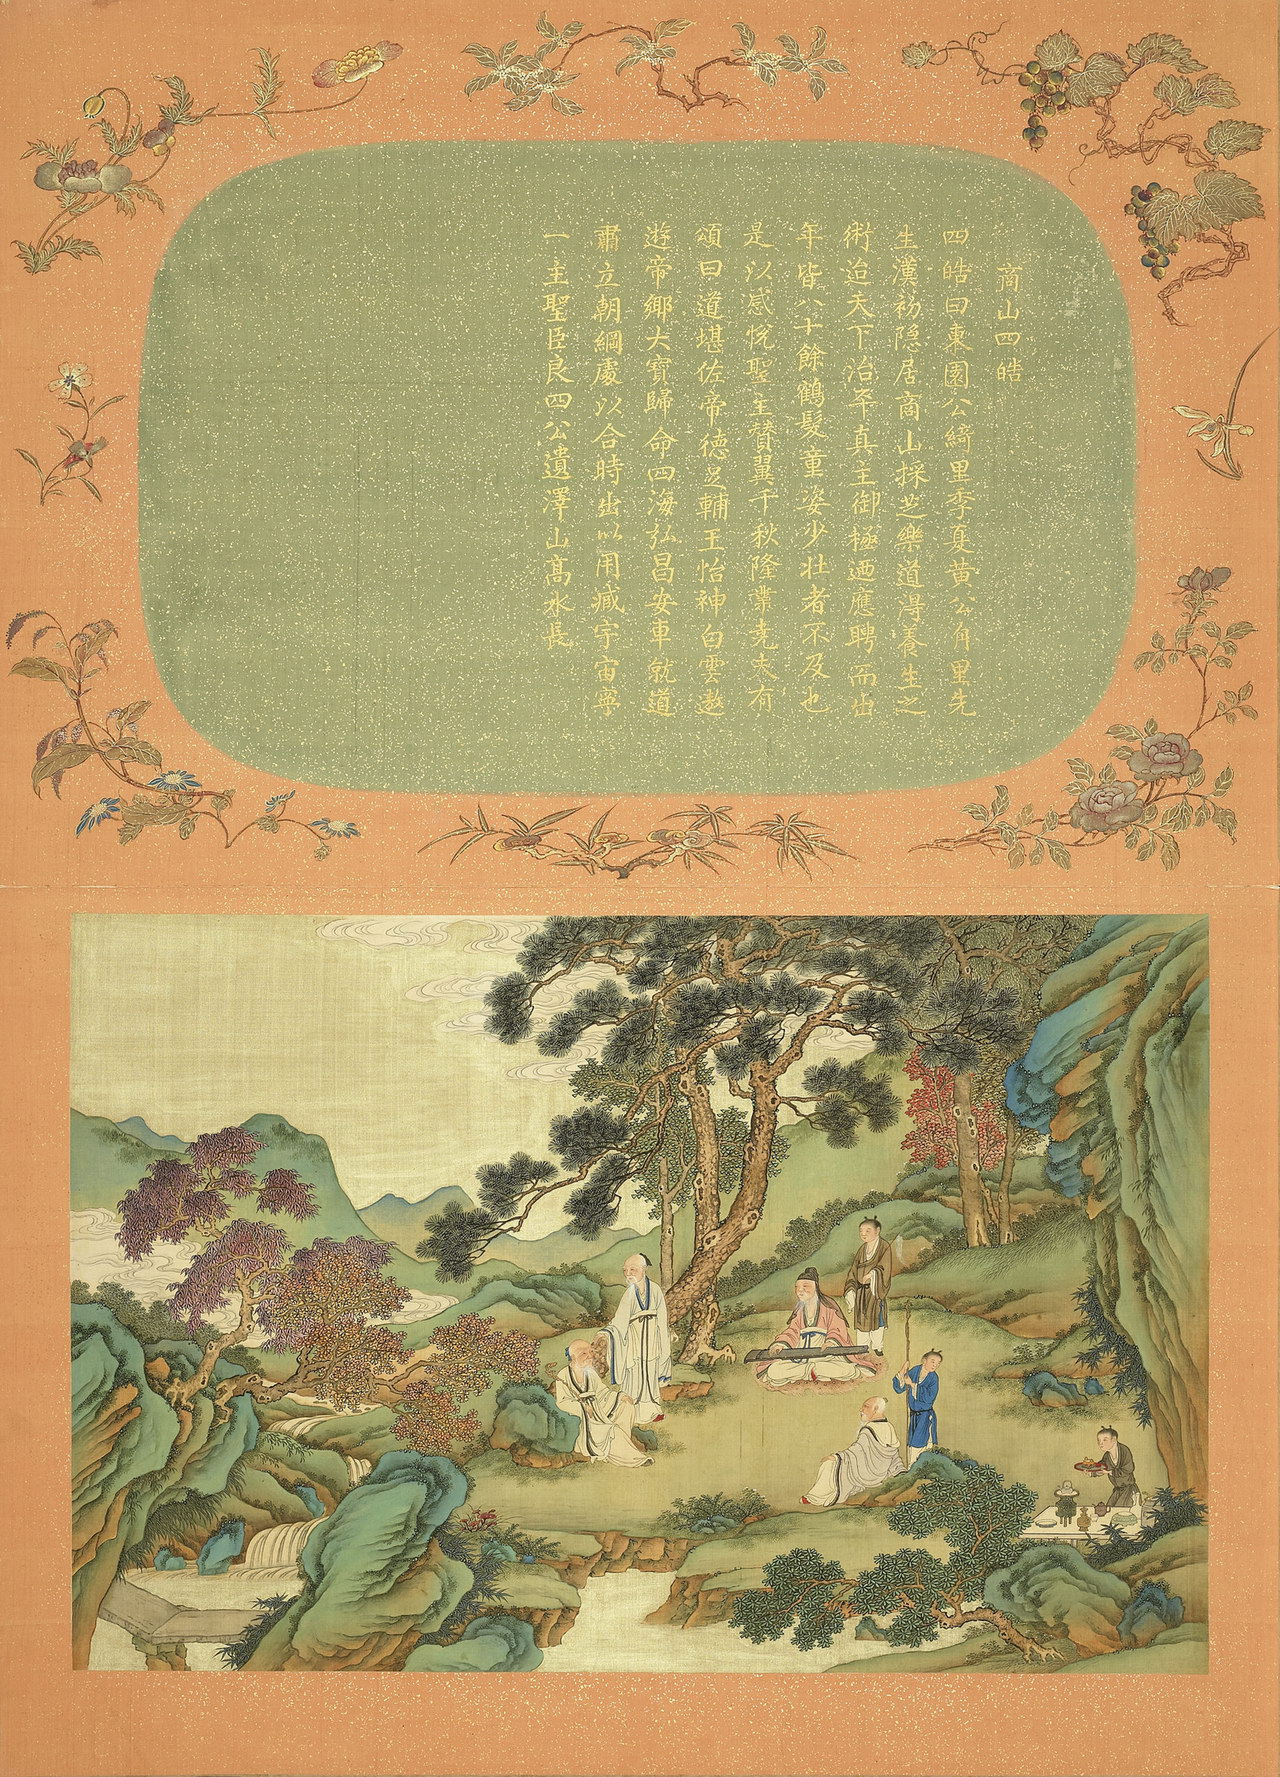 商山四皓
四皓曰東園公綺里季夏黄公甪里先
生漢初隠居商山採芝樂道淂養生之
術迨天下治平真主御極迺應聘而出
年皆八十餘鶴髮童姿少壯者不及也
是以感悅聖主賛翼千秋隆業堯夫有
頌曰道堪佐帝德足輔王怡神白雲遨
遊帝鄉大寳歸命四海弘昌安車就道
肅立朝綱處以合時出以用臧宇宙寧
一主聖臣良四公遺澤山高水長